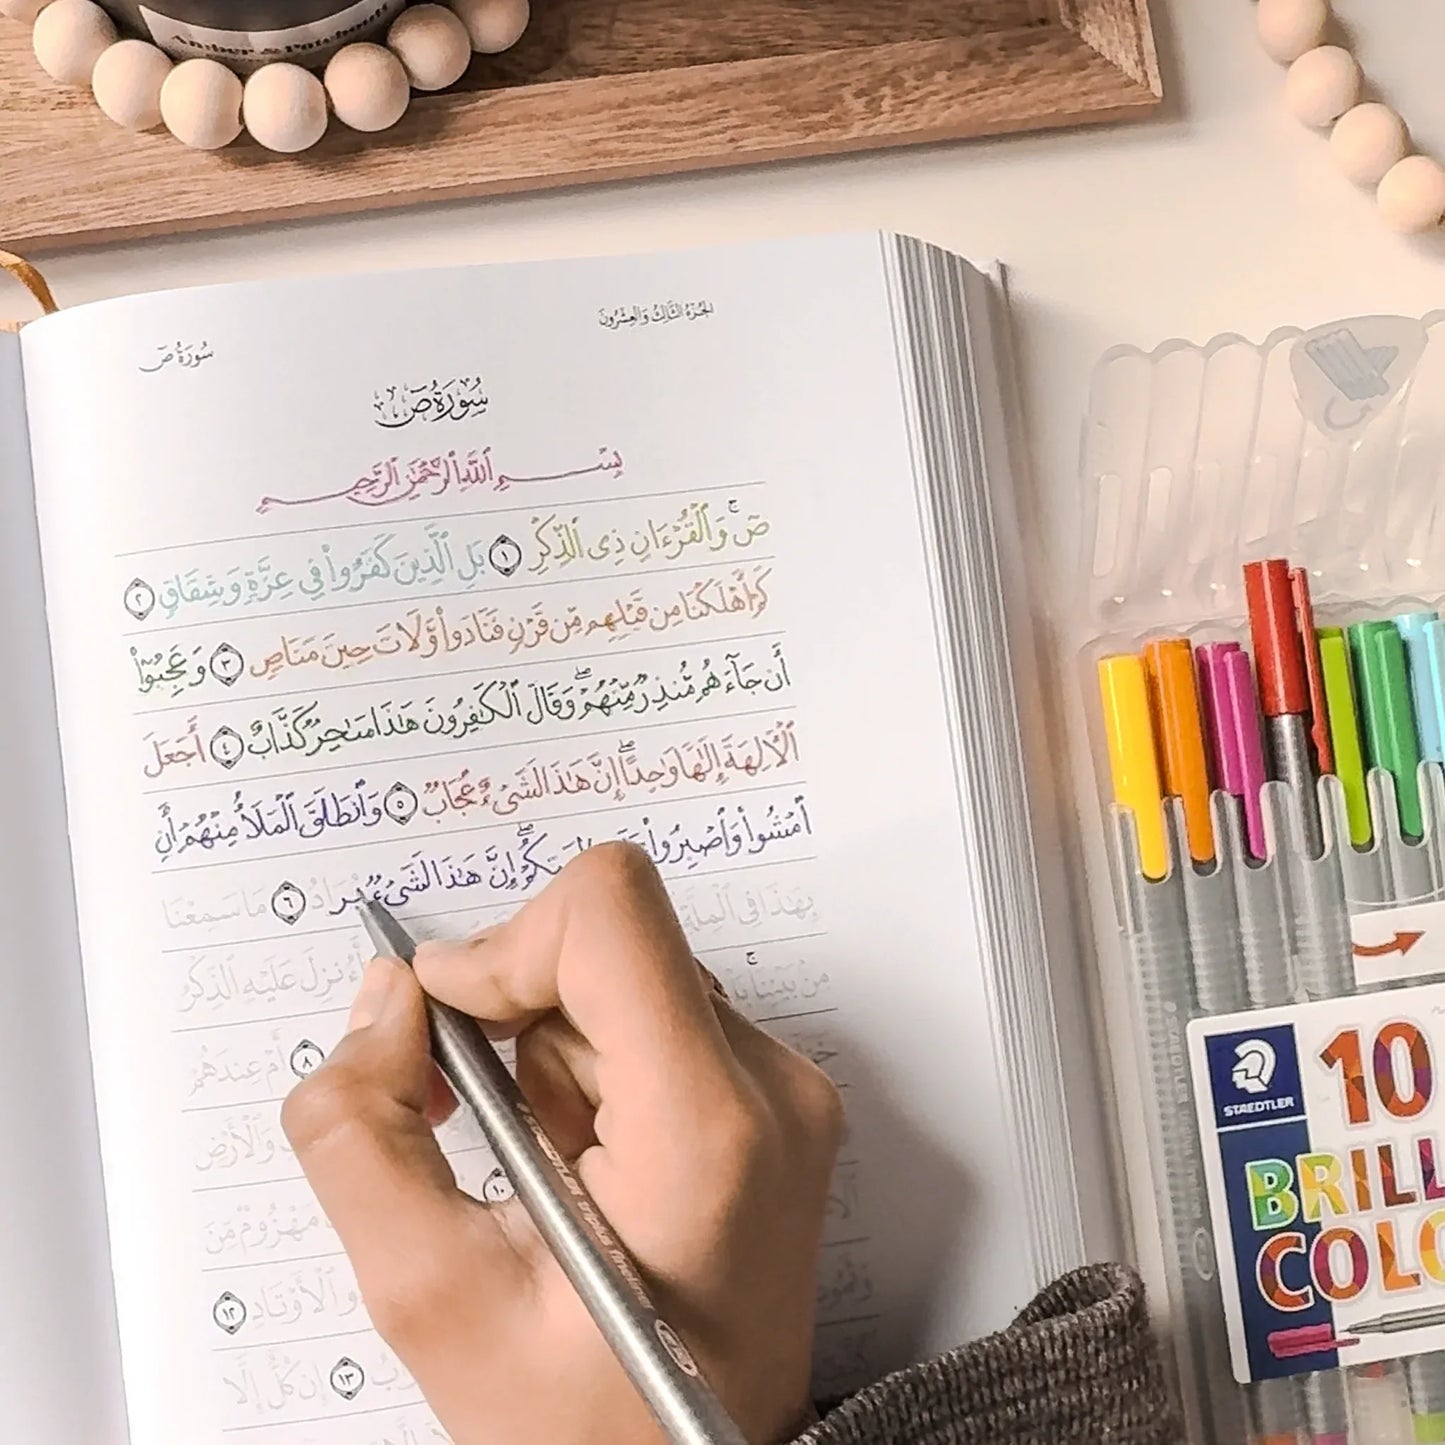 Amber & Patchouli
الجزء الثالث والعشرون
سورة ص
سُورَةُ ص
بِسْمِ ٱللَّهِ ٱلرَّحْمَٰنِ ٱلرَّحِيمِ
صٓ ۚ وَٱلْقُرْءَانِ ذِى ٱلذِّكْرِ ١ بَلِ ٱلَّذِينَ كَفَرُوا۟ فِى عِزَّةٍ وَشِقَاقٍ ٢
كَمْ أَهْلَكْنَا مِن قَبْلِهِم مِّن قَرْنٍ فَنَادَوا۟ وَّلَاتَ حِينَ مَنَاصٍ ٣ وَعَجِبُوٓا۟
أَن جَآءَهُم مُّنذِرٌ مِّنْهُمْ ۖ وَقَالَ ٱلْكَٰفِرُونَ هَٰذَا سَٰحِرٌ كَذَّابٌ ٤ أَجَعَلَ
ٱلْءَالِهَةَ إِلَٰهًا وَٰحِدًا ۖ إِنَّ هَٰذَا لَشَىْءٌ عُجَابٌ ٥ وَٱنطَلَقَ ٱلْمَلَأُ مِنْهُمْ أَنِ
ٱمْشُوا۟ وَٱصْبِرُوا۟ إِنَّ هَٰذَا لَشَىْءٌ
يُرَادُ ٦ مَا سَمِعْنَا
بِهَٰذَا فِى ٱلْمِلَّةِ
أَءُنزِلَ عَلَيْهِ ٱلذِّكْرُ
مِنۢ بَيْنِنَا ۚ
٨
أَمْ عِندَهُمْ
وَٱلْأَرْضِ
١٠
مَهْزُومٌ مِّنَ
ٱلْأَوْتَادِ ١٢
١٣ إِن كُلٌّ إِلَّا
STAEDTLER
10
BRILL
COLO